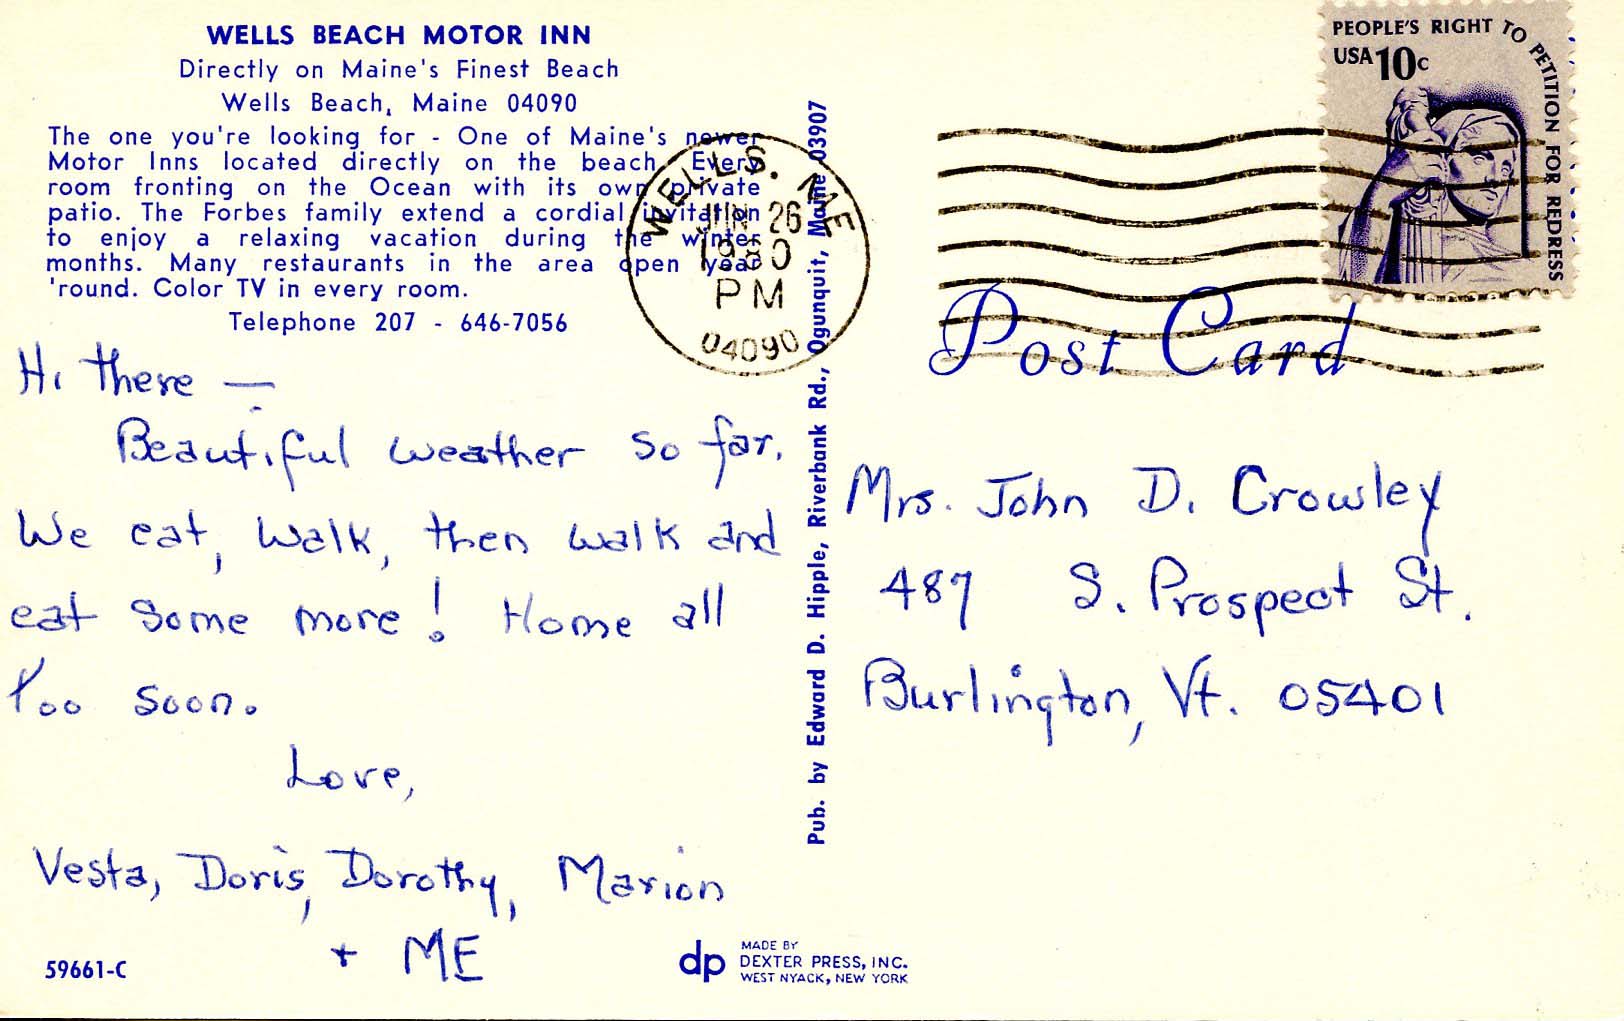 WELLS BEACH MOTOR INN
Directly on Maine's Finest Beach
Wells Beach, Maine 04090
The one you're looking for - One of Maine's newer
Motor Inns located directly on the beach. Every
room fronting on the Ocean with its own private
patio. The Forbes family extend a cordial invitation
to enjoy a relaxing vacation during the winter
months. Many restaurants in the area open year
'round. Color TV in every room.
Telephone 207 - 646-7056
Hi there —
Beautiful weather so far.
We eat, walk, then walk and
eat some more! Home all
too soon.
Love,
Vesta, Doris, Dorothy, Marion
+ ME
59661-C
WELLS. ME
JUN 26
1980
PM
04090
Pub. by Edward D. Hipple, Riverbank Rd., Ogunquit, Maine 03907
dp
MADE BY
DEXTER PRESS, INC.
WEST NYACK, NEW YORK
PEOPLE'S RIGHT TO PETITION FOR REDRESS
USA 10c
Post Card
Mrs. John D. Crowley
487 S. Prospect St.
Burlington, Vt. 05401